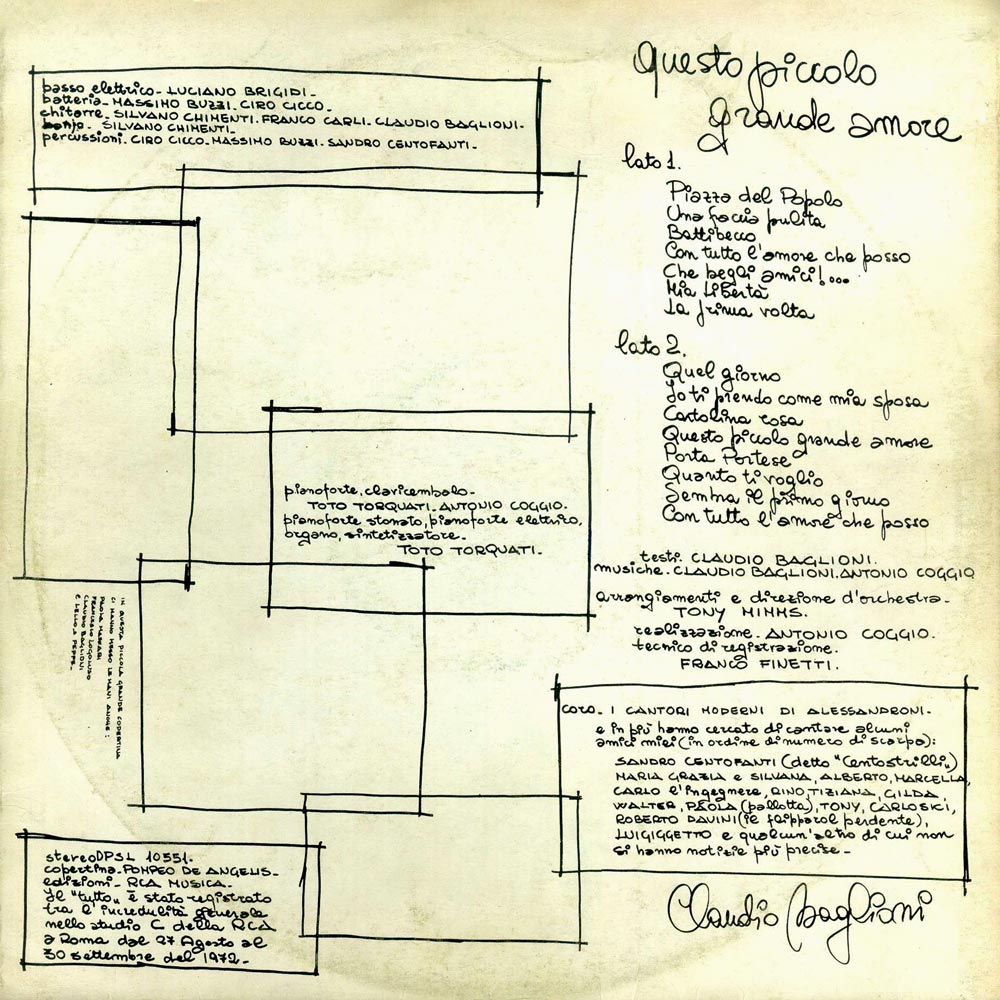 basso elettrico - LUCIANO BRIGIDI -
batteria - MASSIMO BUZZI. CIRO CICCO -
chitarre - SILVANO CHIMENTI. FRANCO CARLI. CLAUDIO BAGLIONI -
banjo - SILVANO CHIMENTI -
percussioni - CIRO CICCO - MASSIMO BUZZI - SANDRO CENTOFANTI -
pianoforte, clavicembalo -
TOTO TORQUATI - ANTONIO COGGIO.
pianoforte stonato, pianoforte elettrico,
organo, sintetizzatore -
TOTO TORQUATI -
IN QUESTA PICCOLA GRANDE COPERTINA
CI HANNO MESSO LE MANI ANCHE :
PAOLA MASSARI
FRANCESCO LOGOLUSO
CLAUDIO BAGLIONI
E LELLO E PEPPE -
stereo DPSL 10551 -
copertina - POMPEO DE ANGELIS -
edizioni - RCA MUSICA -
Il "tutto" è stato registrato
tra l'incredulità generale
nello studio C della RCA
a Roma dal 27 Agosto al
30 settembre del 1972 -
Questo piccolo
grande amore
lato 1.
Piazza del Popolo
Una faccia pulita
Battibecco
Con tutto l'amore che posso
Che begli amici!...
Mia Libertà
La prima volta
lato 2.
Quel giorno
Io ti prendo come mia sposa
Cartolina rosa
Questo piccolo grande amore
Porta Portese
Quanto ti voglio
Sembra il primo giorno
Con tutto l'amore che posso
testi. CLAUDIO BAGLIONI.
musiche. CLAUDIO BAGLIONI. ANTONIO COGGIO
arrangiamenti e direzione d'orchestra -
TONY MIMMS.
realizzazione. ANTONIO COGGIO.
tecnico di registrazione.
FRANCO FINETTI.
coro - I CANTORI MODERNI DI ALESSANDRONI -
e in più hanno cercato di cantare alcuni
amici miei (in ordine di numero di scarpa):
SANDRO CENTOFANTI (detto "Centostrilli")
MARIA GRAZIA e SILVANA, ALBERTO, MARCELLA,
CARLO l'ingegnere, RINO, TIZIANA, GILDA,
WALTER, PAOLA (pallotta), TONY, CARLO SICI,
ROBERTO DAVINI (il flipparol perdente),
LUIGIGGETTO e qualcun'altro di cui non
si hanno notizie più precise -
Claudio Baglioni